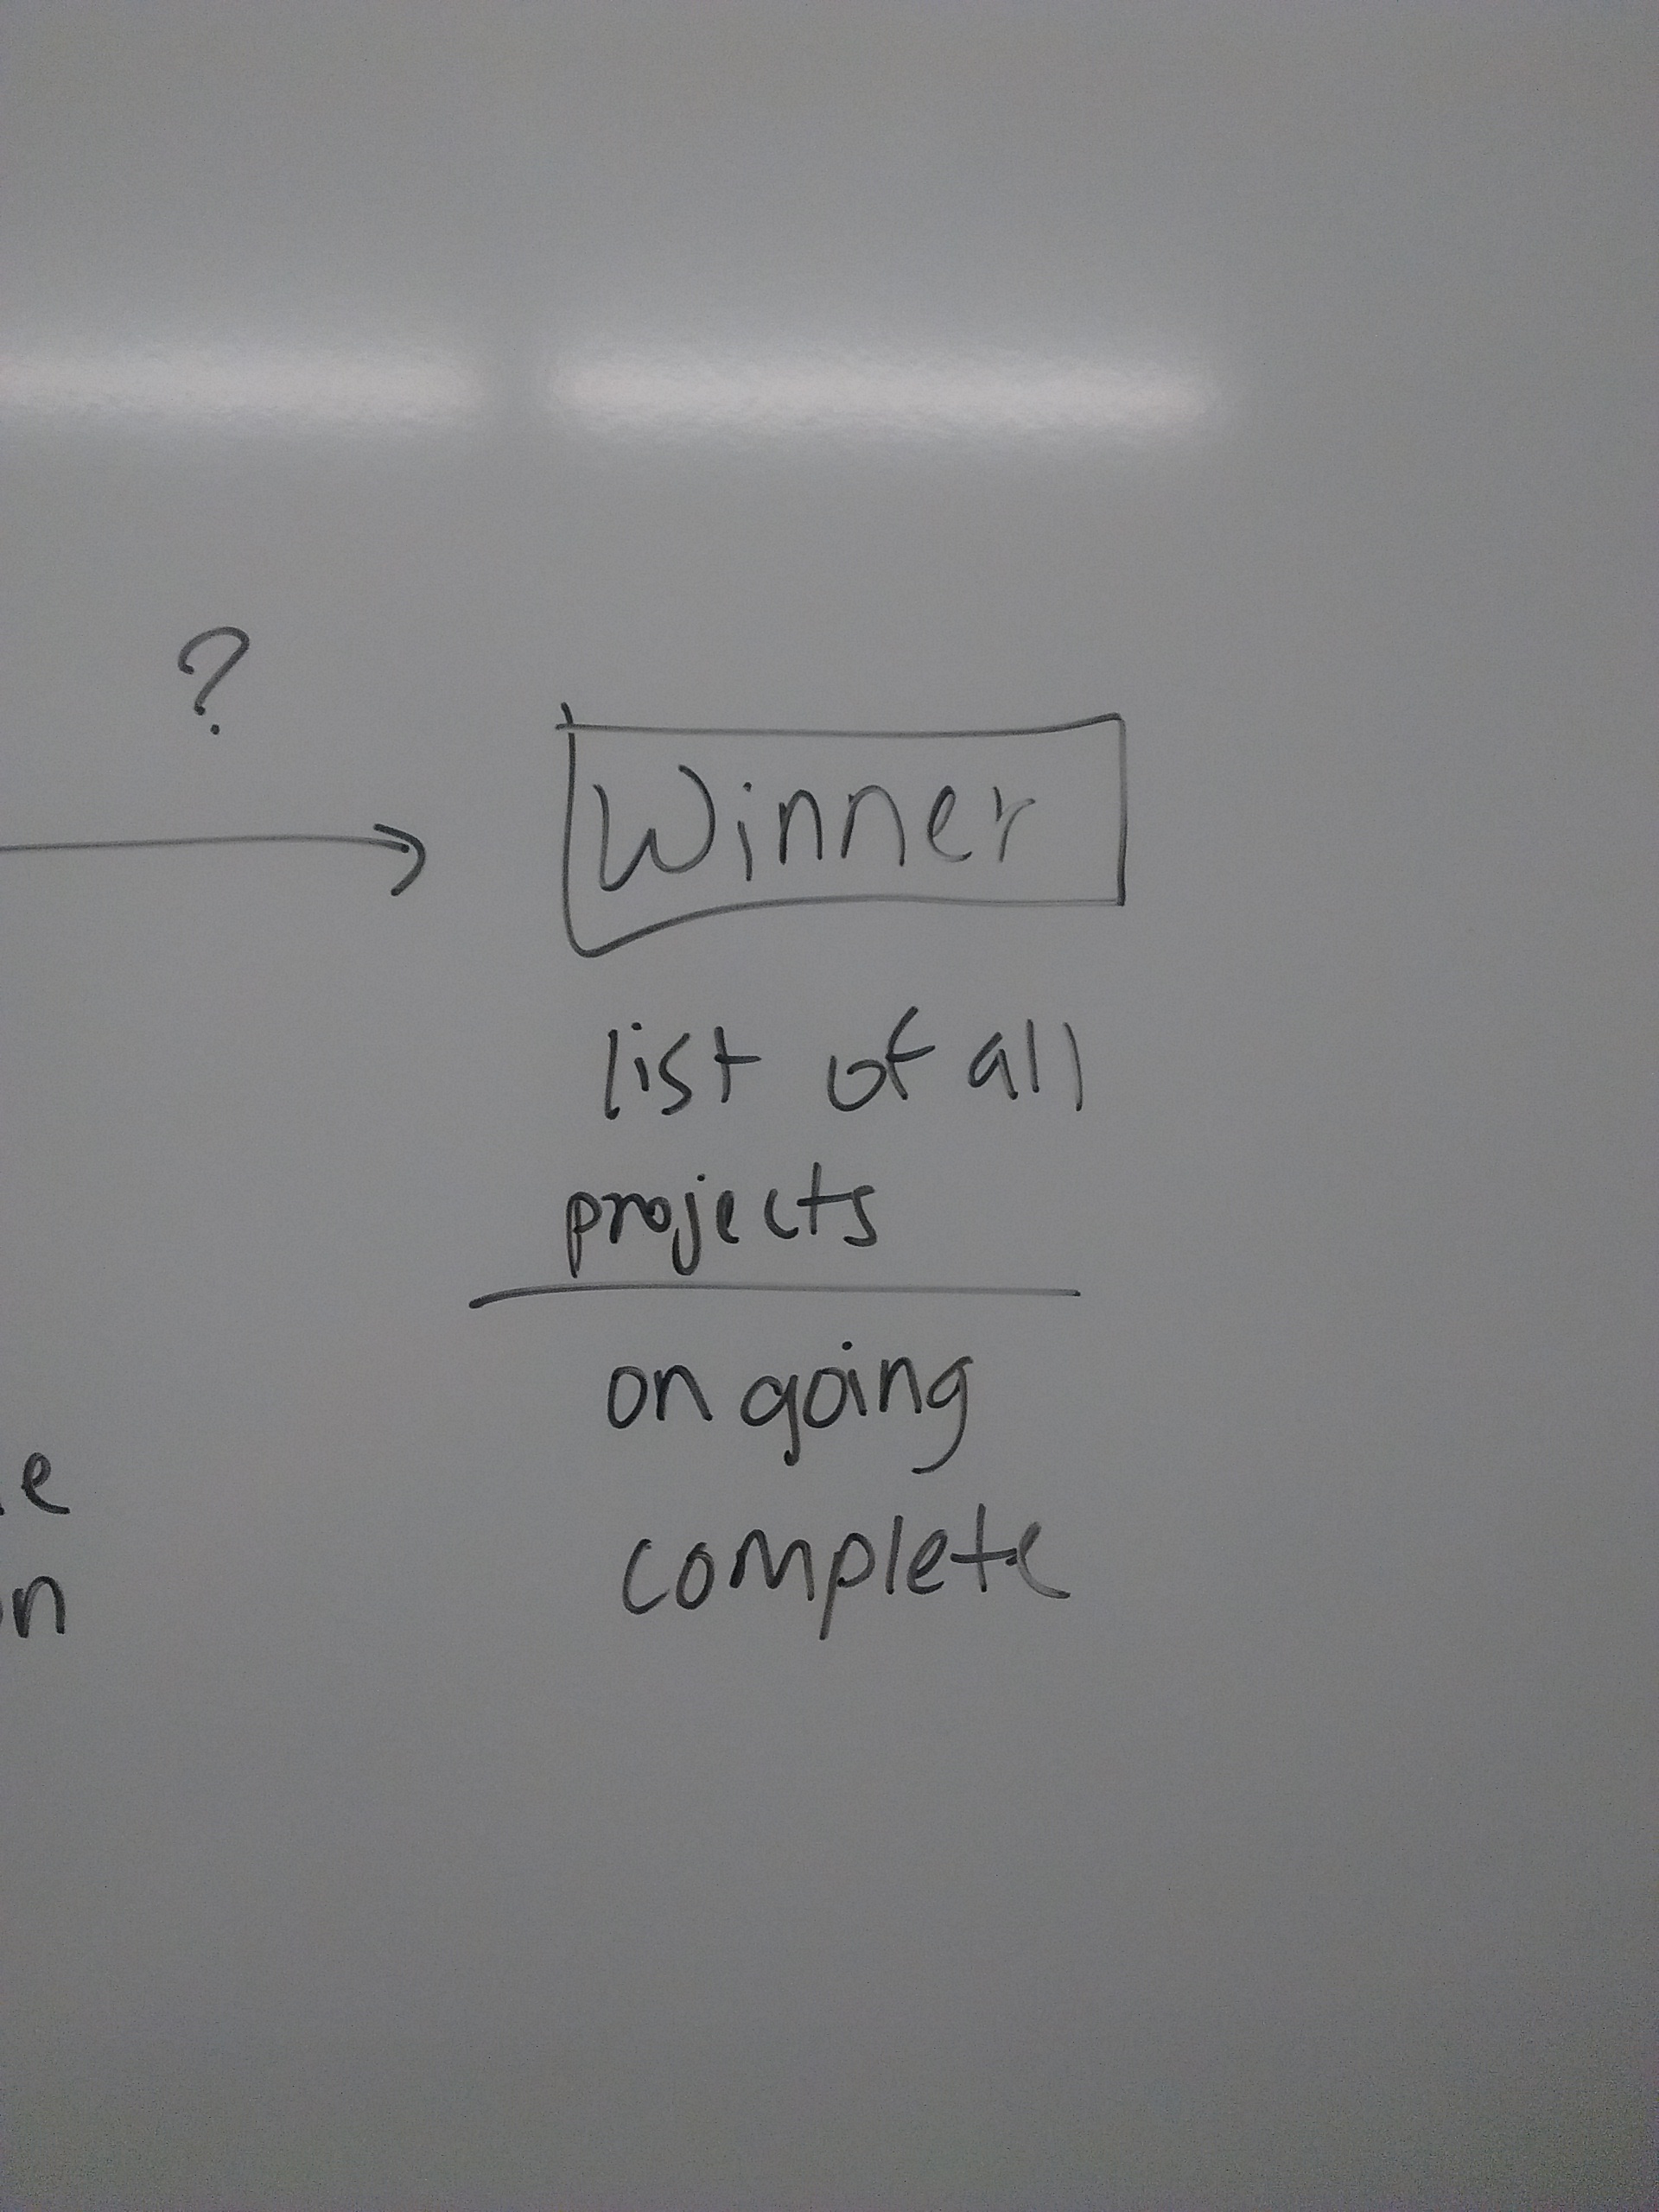 ?
Winner
list of all
projects
on going
complete